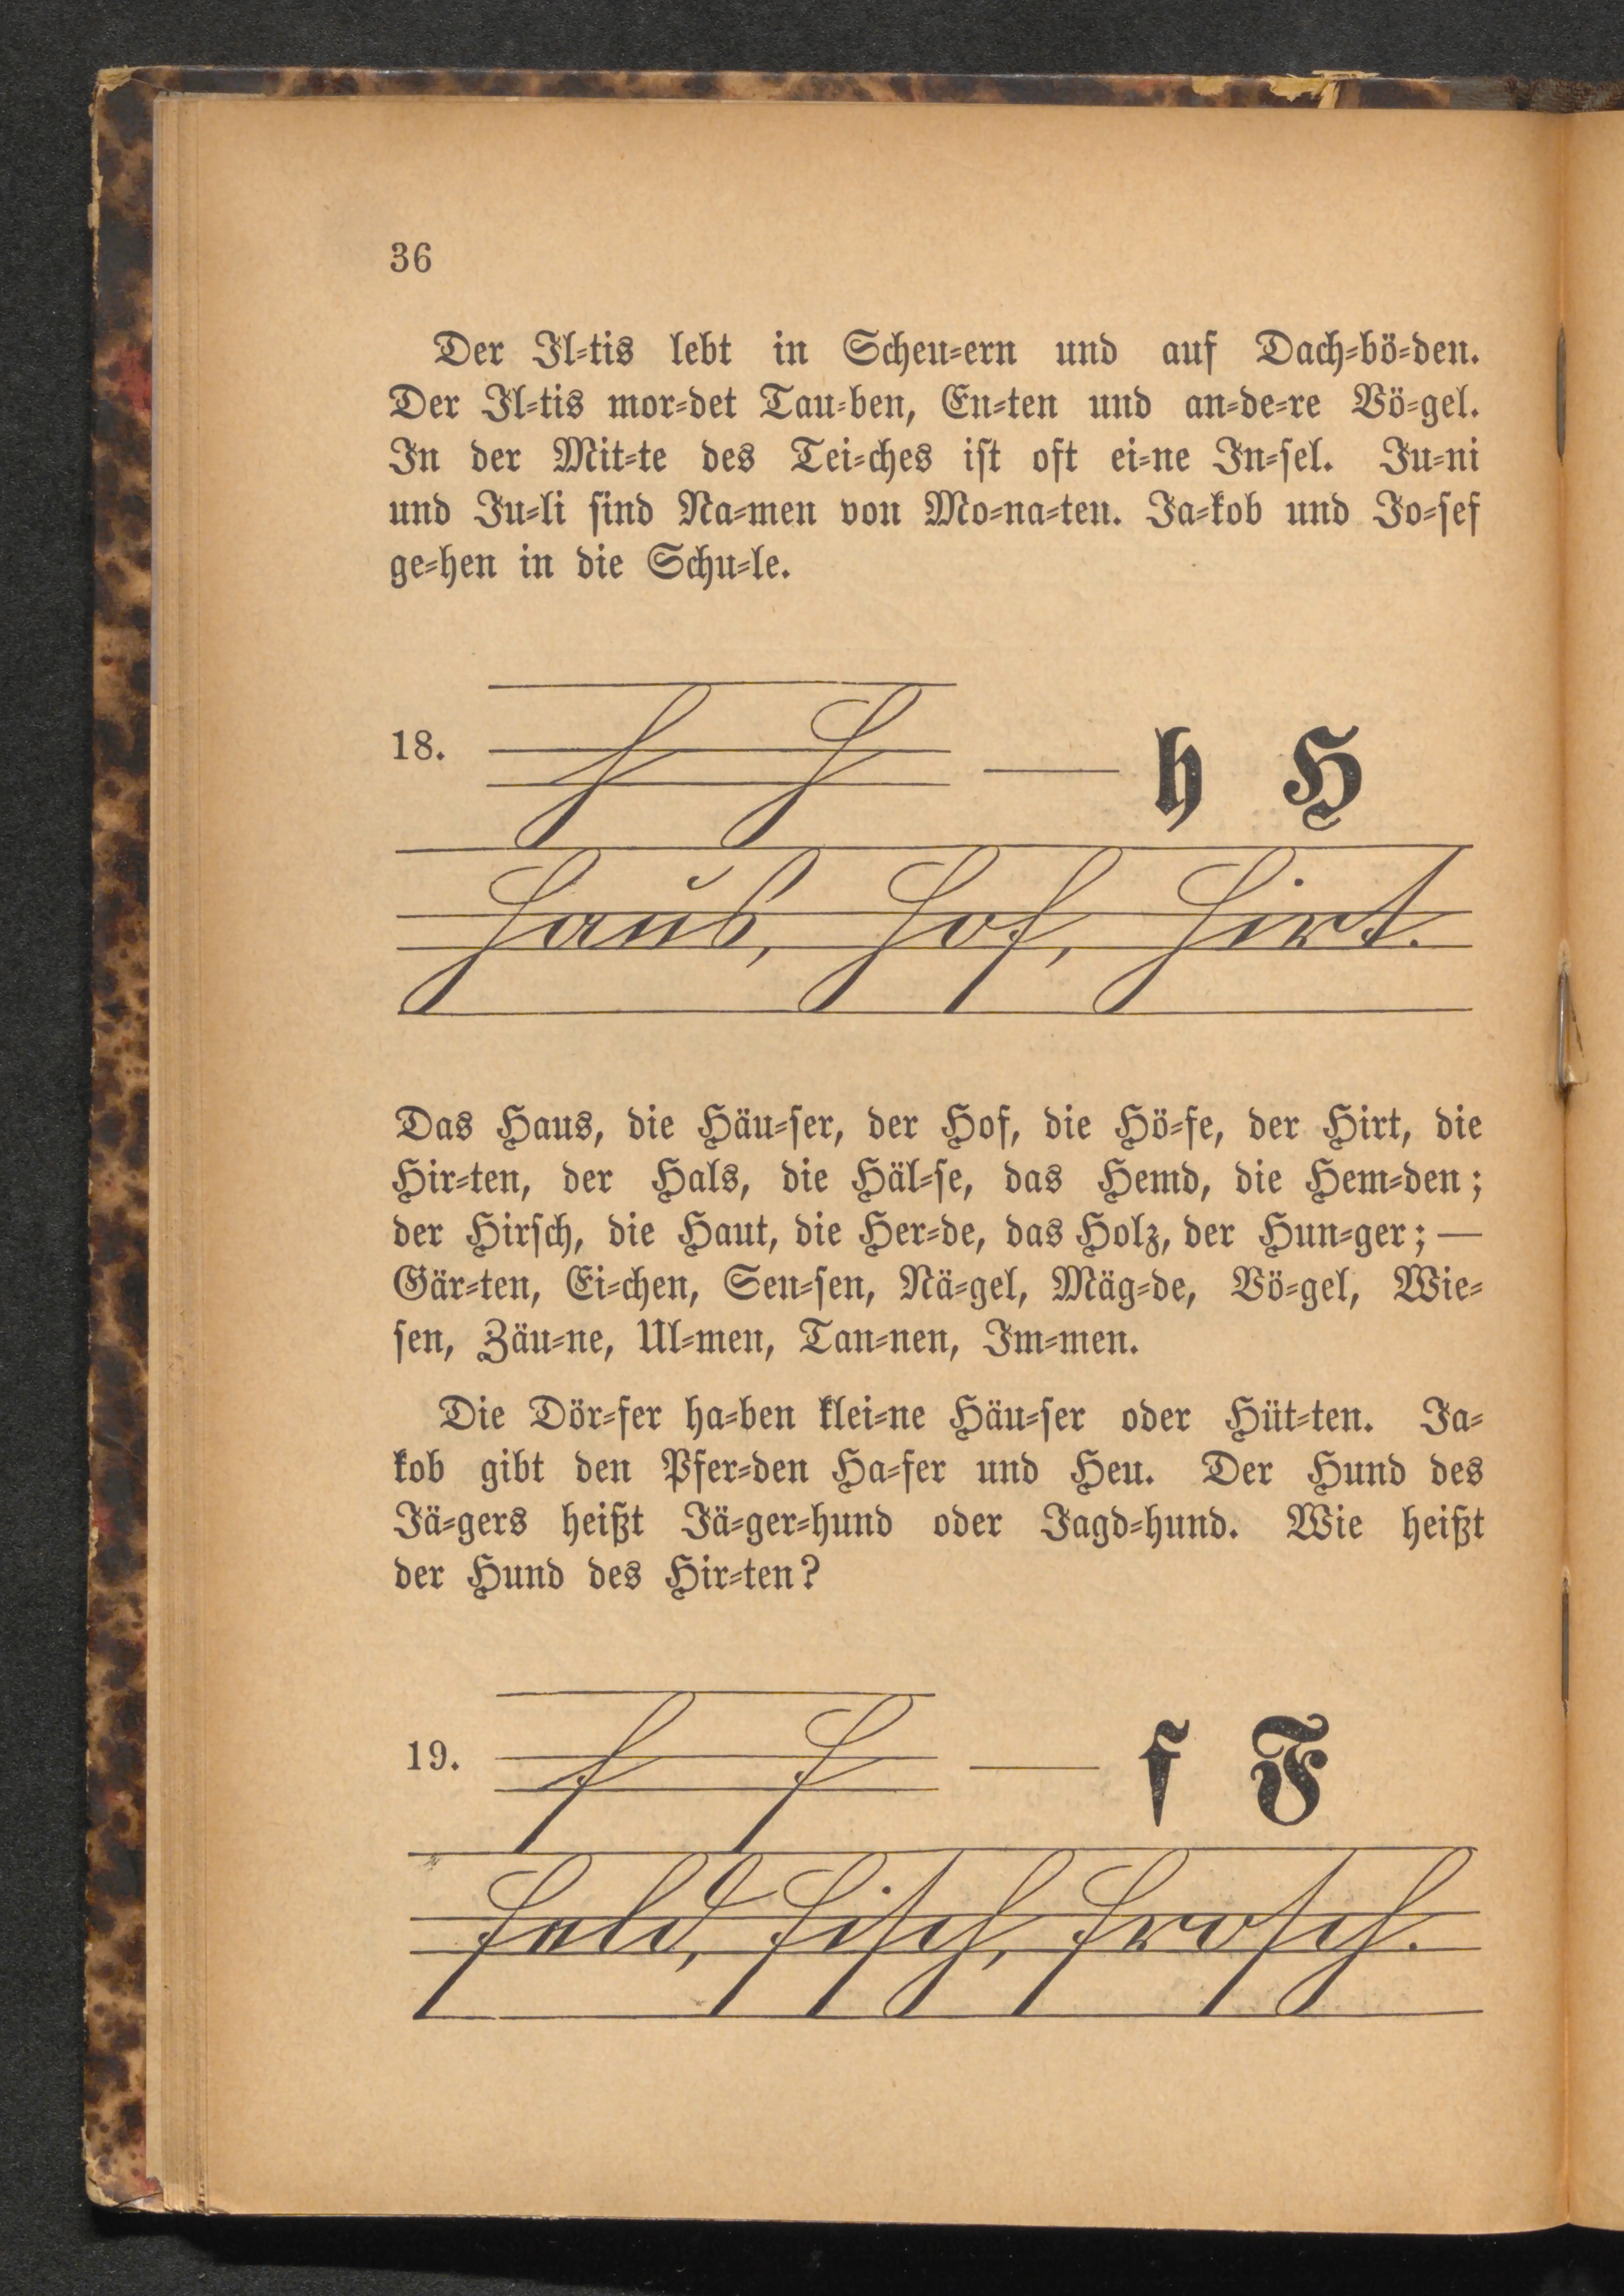 36
Der Il⸗tis lebt in Scheu⸗ern und auf Dach⸗bö⸗den.
Der Il⸗tis mor⸗det Tau⸗ben, En⸗ten und an⸗de⸗re Vö⸗gel.
In der Mit⸗te des Tei⸗ches iſt oft ei⸗ne In⸗ſel. Ju⸗ni
und Ju⸗li ſind Na⸗men von Mo⸗na⸗ten. Ja⸗kob und Jo⸗ſef
ge⸗hen in die Schu⸗le.
18. h H — h H
Haus, Hof, Hirt.
Das Haus, die Häu⸗ſer, der Hof, die Hö⸗fe, der Hirt, die
Hir⸗ten, der Hals, die Häl⸗ſe, das Hemd, die Hem⸗den;
der Hirſch, die Haut, die Her⸗de, das Holz, der Hun⸗ger; —
Gär⸗ten, Ei⸗chen, Sen⸗ſen, Nä⸗gel, Mäg⸗de, Vö⸗gel, Wie⸗
ſen, Zäu⸗ne, Ul⸗men, Tan⸗nen, Im⸗men.
Die Dör⸗fer ha⸗ben klei⸗ne Häu⸗ſer oder Hüt⸗ten. Ja⸗
kob gibt den Pfer⸗den Ha⸗fer und Heu. Der Hund des
Jä⸗gers heißt Jä⸗ger⸗hund oder Jagd⸗hund. Wie heißt
der Hund des Hir⸗ten?
19. f F — f F
Feld, Fiſch, Froſch.